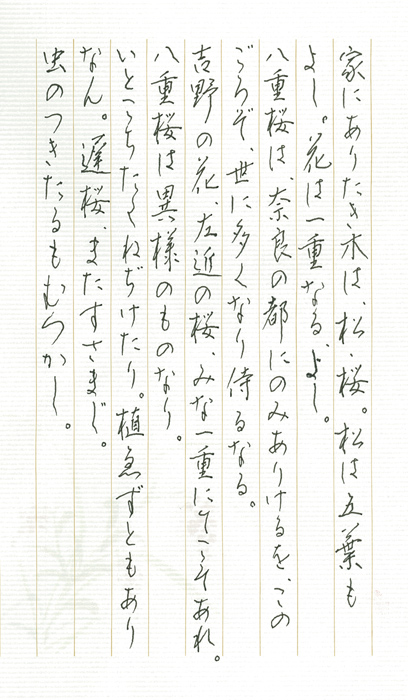 家にありたき木は、松・桜。松は五葉も
よし。花は一重なる、よし。
八重桜は、奈良の都にのみありけるを、この
ごろぞ、世に多くなり侍るなる。
吉野の花、左近の桜、みな一重にてこそあれ。
八重桜は異様のものなり。
いとこちたく、ねぢけたり。植ゑずともあり
なん。遅桜、またすさまじ。
虫のつきたるもむつかし。